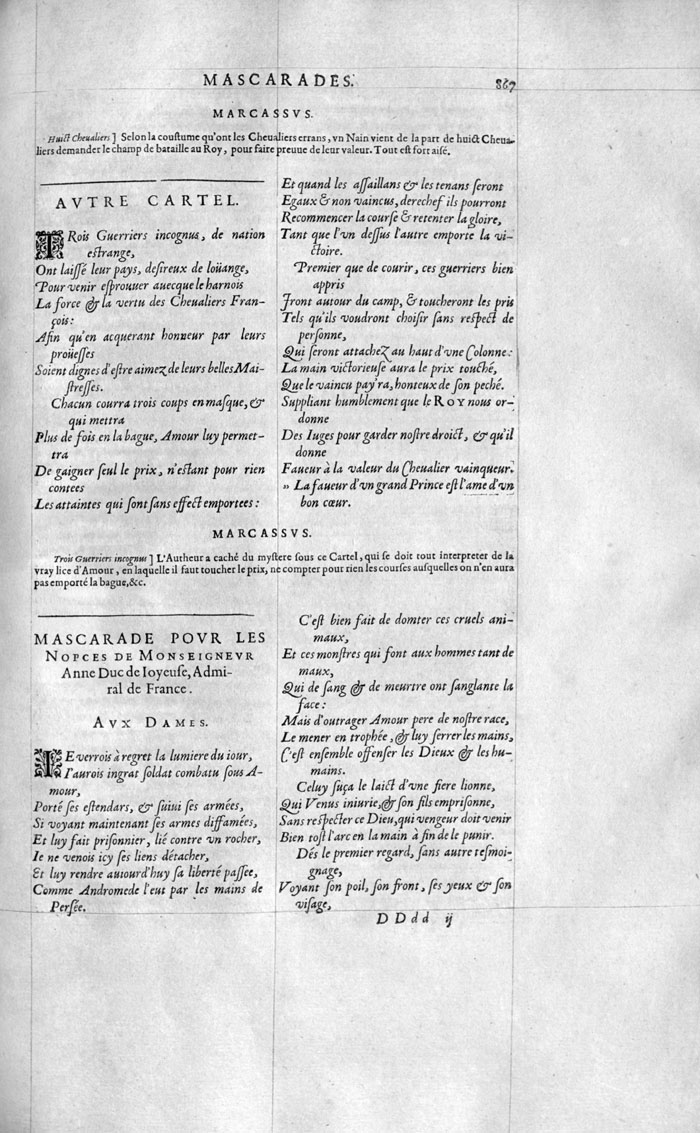 MASCARADES.
867
MARCASSVS.
Huict Cheualiers ] Selon la coustume qu'ont les Cheualiers errans, vn Nain vient de la part de huict Cheua-
liers demander le champ de bataille au Roy, pour faire preuue de leur valeur. Tout est fort aisé.
AVTRE CARTEL.
TRois Guerriers incognus, de nation
estrange,
Ont laissé leur pays, desireux de loüange,
Pour venir esprouuer auecque le harnois
La force & la vertu des Cheualiers Fran-
çois:
Afin qu'en acquerant honneur par leurs
proüesses
Soient dignes d'estre aimez de leurs belles Mai-
stresses.
Chacun courra trois coups en masque, &
qui mettra
Plus de fois en la bague, Amour luy permet-
tra
De gaigner seul le prix, n'estant pour rien
contees
Les attaintes qui sont sans effect emportees:
Et quand les assaillans & les tenans seront
Egaux & non vaincus, derechef ils pourront
Recommencer la course & retenter la gloire,
Tant que l'vn dessus l'autre emporte la vi-
ctoire.
Premier que de courir, ces guerriers bien
appris
Iront autour du camp, & toucheront les pris
Tels qu'ils voudront choisir sans respect de
personne,
Qui seront attachez au haut d'vne Colonne:
La main victorieuse aura le prix touché,
Que le vaincu pay'ra, honteux de son peché.
Suppliant humblement que le ROY nous or-
donne
Des Iuges pour garder nostre droict, & qu'il
donne
Faueur à la valeur du Cheualier vainqueur.
» La faueur d'vn grand Prince est l'ame d'vn
bon cœur.
MARCASSVS.
Trois Guerriers incognus ] L'Autheur a caché du mystere sous ce Cartel, qui se doit tout interpreter de la
vray lice d'Amour, en laquelle il faut toucher le prix, ne compter pour rien les courses ausquelles on n'en aura
pas emporté la bague, &c.
MASCARADE POVR LES
NOPCES DE MONSEIGNEVR
Anne Duc de Ioyeuse, Admi-
ral de France.
AVX DAMES.
IE verrois à regret la lumiere du iour,
I'aurois ingrat soldat combatu sous A-
mour,
Porté ses estendars, & suiui ses armées,
Si voyant maintenant ses armes diffamées,
Et luy fait prisonnier, lié contre vn rocher,
Ie ne venois icy ses liens détacher,
Et luy rendre autourd'huy sa liberté passee,
Comme Andromede l'eut par les mains de
Persée.
C'est bien fait de domter ces cruels ani-
maux,
Et ces monstres qui font aux hommes tant de
maux,
Qui de sang & de meurtre ont sanglante la
face:
Mais d'outrager Amour pere de nostre race,
Le mener en trophée, & luy serrer les mains,
C'est ensemble offenser les Dieux & les hu-
mains.
Celuy suça le laict d'vne fiere lionne,
Qui Venus iniurie, & son fils emprisonne,
Sans respecter ce Dieu, qui vengeur doit venir
Bien tost l'arc en la main à fin de le punir.
Dés le premier regard, sans autre tesmoi-
gnage,
Voyant son poil, son front, ses yeux & son
visage,
DDdd ij